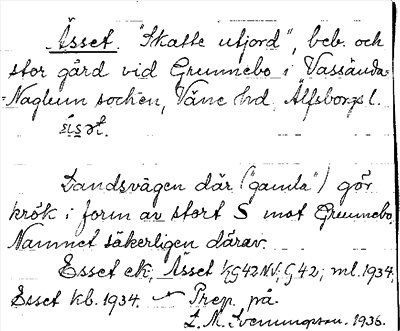 Ässet. "Skatte utjord", beb. och
stor gård vid Grunnebo i Vassända-
=Naglum socken, Väne hd Älfsborgs l.
Landsvägen där ("gamla") gör
krök i form av stort S mot Grunnebo.
Namnet säkerligen därav.
Esset ek, Ässet KG42NV; G42; ml. 1934,
Esset kb. 1934. — Prep. på.
1936.